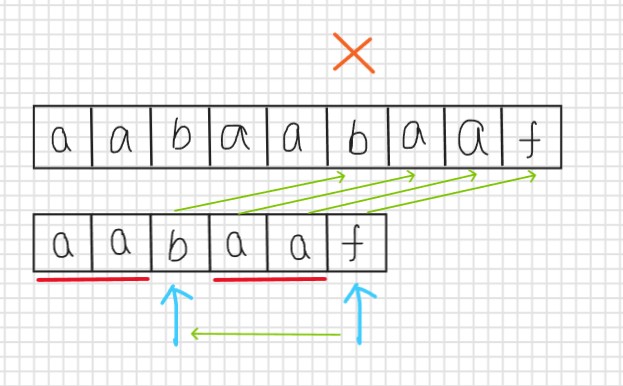 a a b a a b a a f
a a b a a f